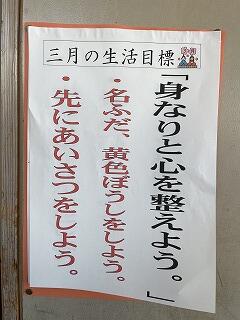 三月の生活目標
「身なりと心を整えよう。」
・名ふだ、黄色ぼうしをしよう。
・先にあいさつをしよう。